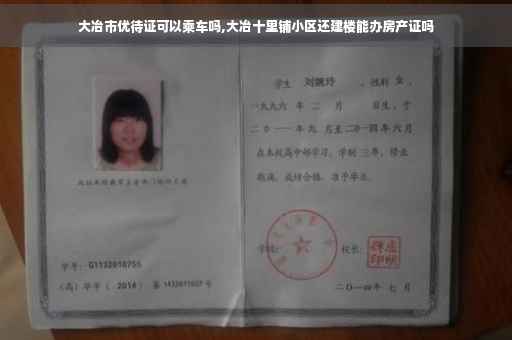 大冶市优待证可以乘车吗,大冶十里铺小区还建楼能办房产证吗
学生 刘婉玲 ,性别 女 ,
一九九六 年 二 月 日生,于
二〇一一年九 月至二〇一四年六月
在本校高中部学习,学制 三年,修业
期满,成绩合格,准予毕业。
学校: 校长:
学号: G1132010755
(高)毕字( 2014 )第 1432011027 号
二〇一四年 七 月